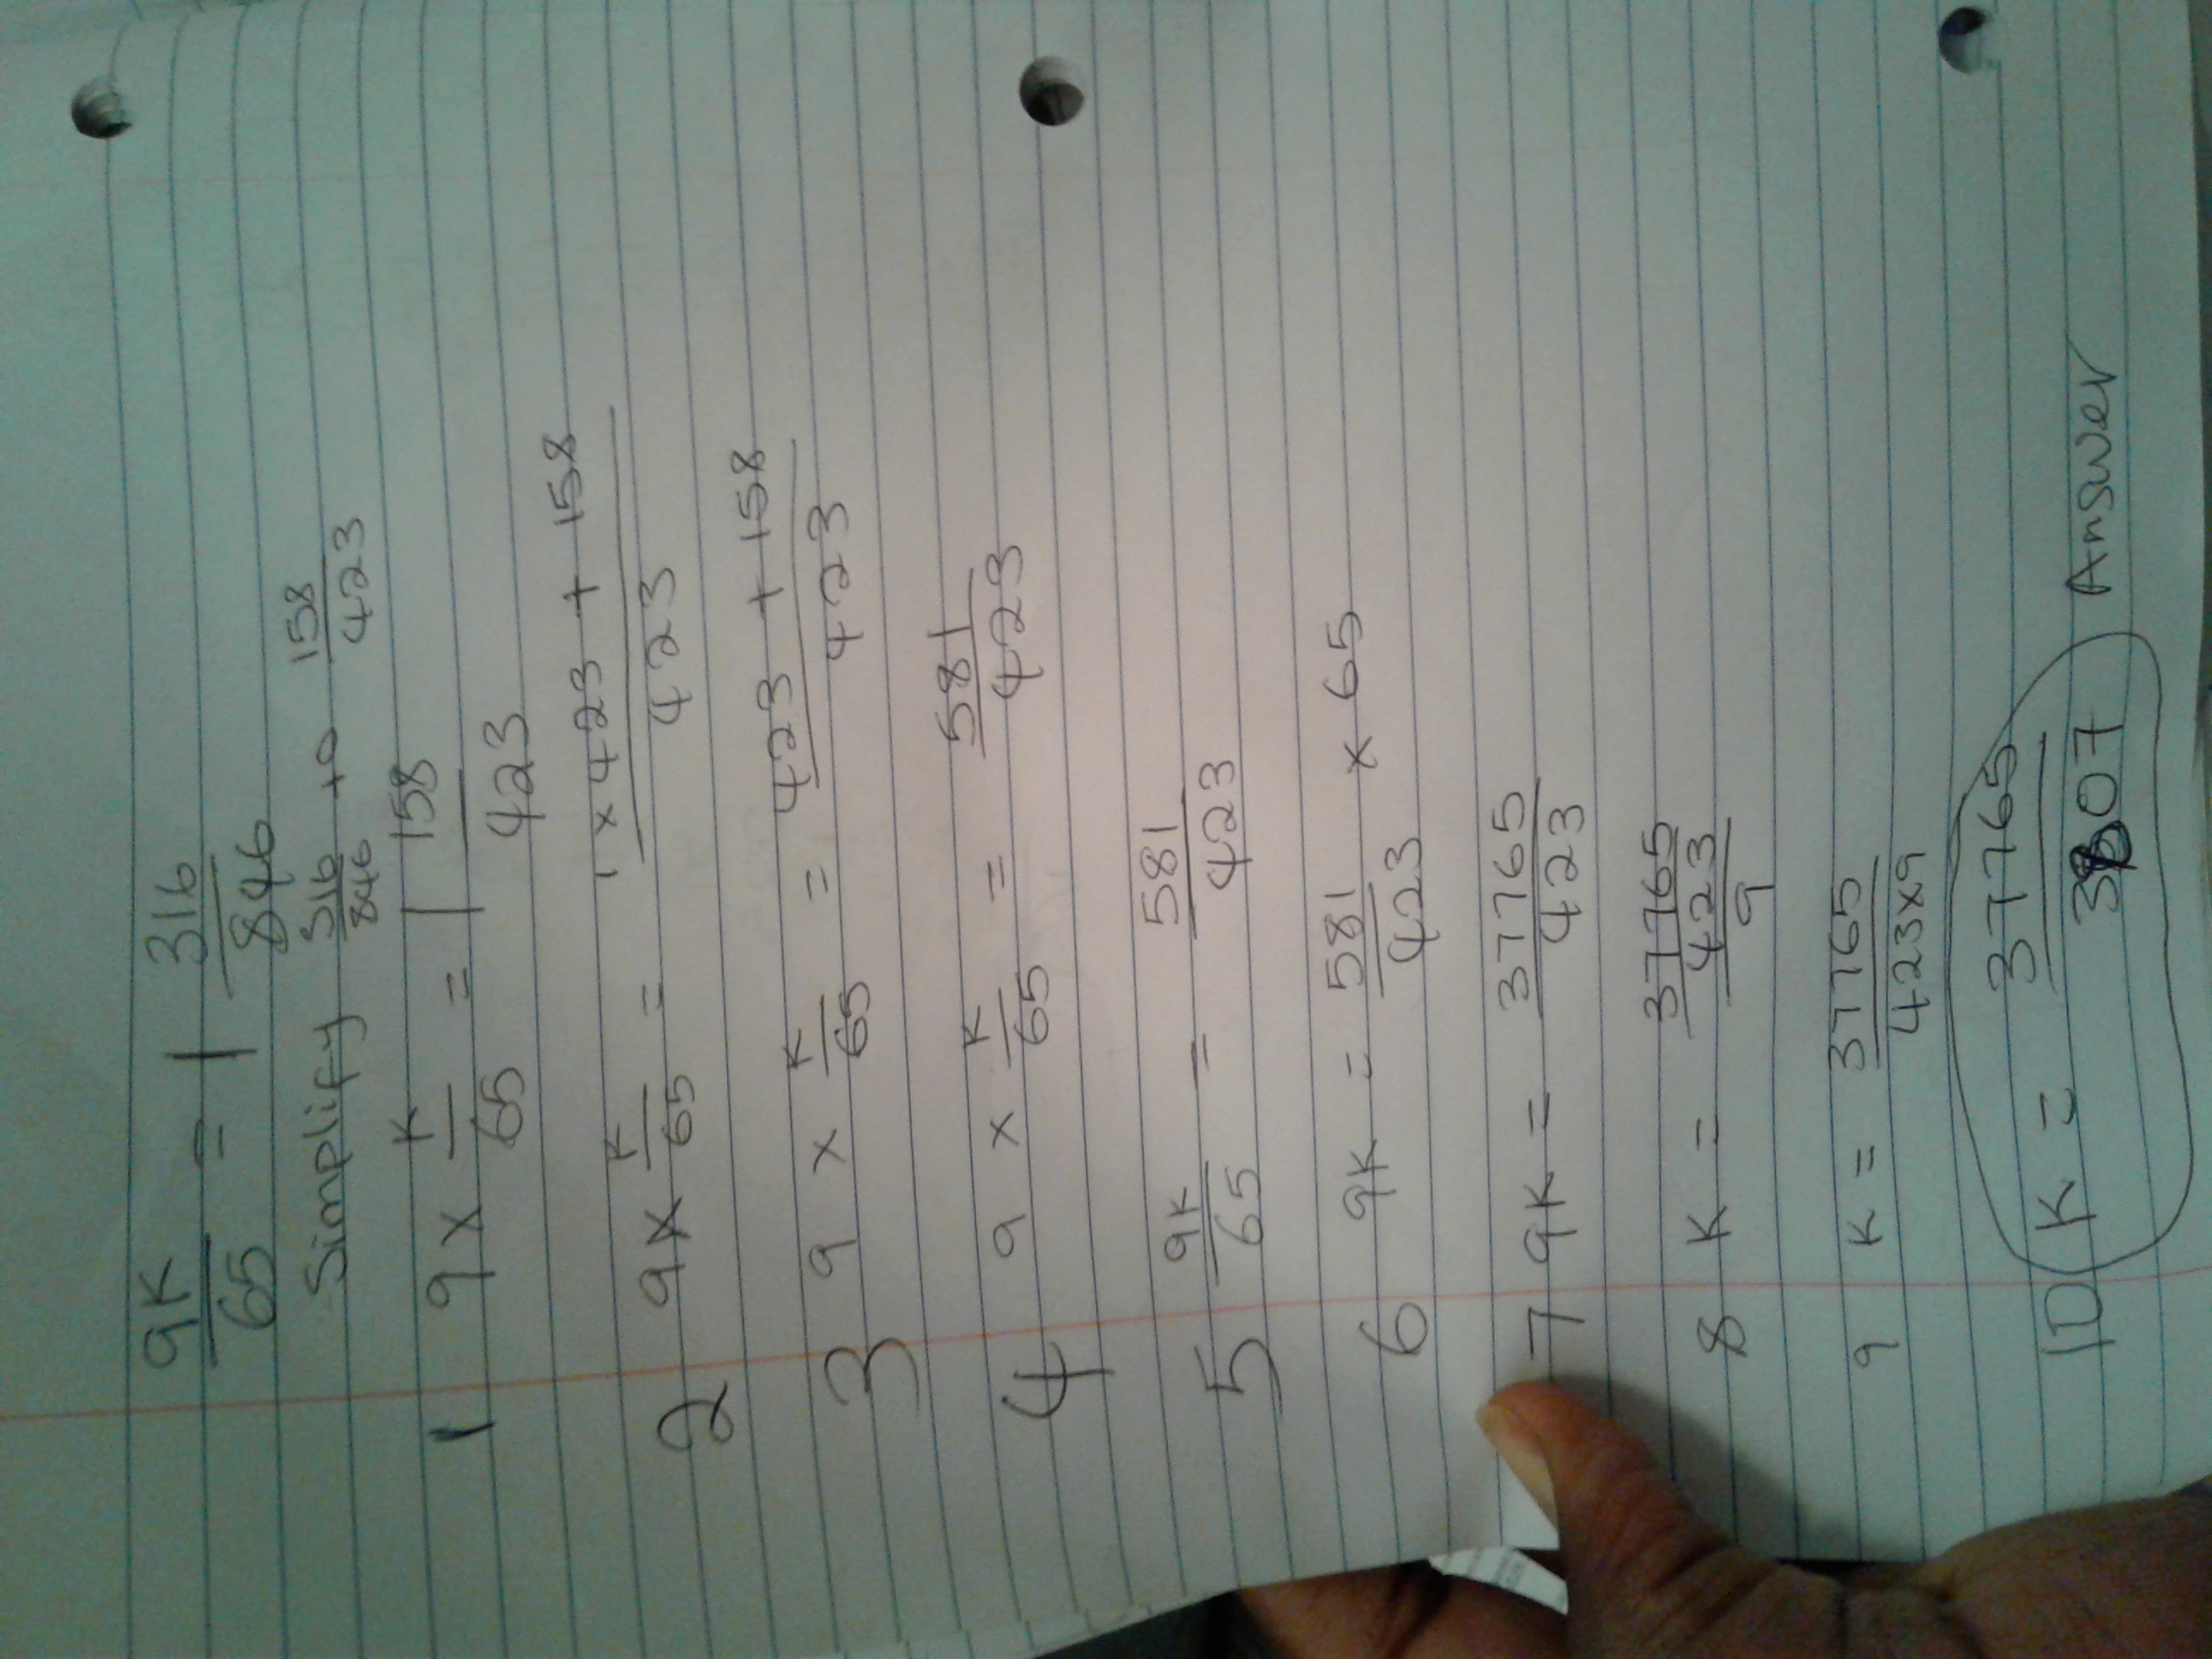 9K/65 = 1 316/846
Simplify 316/846 to 158/423
1 9 x K/65 = 1 158/423
2 9 x K/65 = 1 x 423 + 158/423
3 9 x K/65 = 423 + 158/423
4 9 x K/65 = 581/423
5 9K/65 = 581/423
6 9K = 581/423 x 65
7 9K = 37765/423
8 K = 37765/423/9
9 K = 37765/423x9
10 K = 37765/3807 Answer